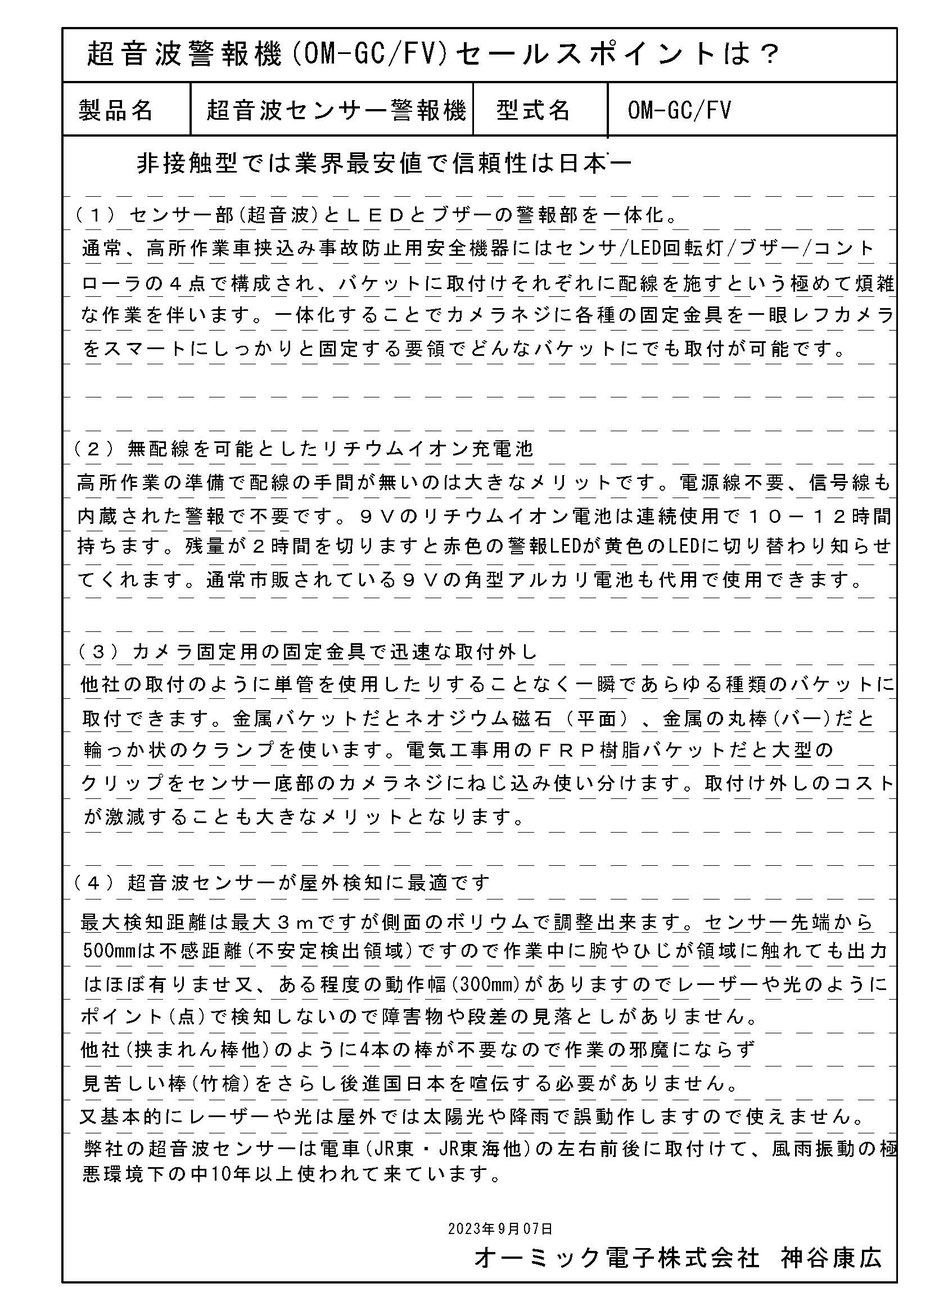 超音波警報機(OM-GC/FV)セールスポイントは？
製品名 超音波センサー警報機 型式名 OM-GC/FV
非接触型では業界最安値で信頼性は日本一
（１）センサー部(超音波)とＬＥＤとブザーの警報部を一体化。
通常、高所作業車挟込み事故防止用安全機器にはセンサ/LED回転灯/ブザー/コント
ローラの４点で構成され、バケットに取付けそれぞれに配線を施すという極めて煩雑
な作業を伴います。一体化することでカメラネジに各種の固定金具を一眼レフカメラ
をスマートにしっかりと固定する要領でどんなバケットにでも取付が可能です。
（２）無配線を可能としたリチウムイオン充電池
高所作業の準備で配線の手間が無いのは大きなメリットです。電源線不要、信号線も
内蔵された警報で不要です。９Ｖのリチウムイオン電池は連続使用で１０－１２時間
持ちます。残量が２時間を切りますと赤色の警報LEDが黄色のLEDに切り替わり知らせ
てくれます。通常市販されている９Ｖの角型アルカリ電池も代用で使用できます。
（３）カメラ固定用の固定金具で迅速な取付外し
他社の取付のように単管を使用したりすることなく一瞬であらゆる種類のバケットに
取付できます。金属バケットだとネオジウム磁石（平面）、金属の丸棒(バー)だと
輪っか状のクランプを使います。電気工事用のＦＲＰ樹脂バケットだと大型の
クリップをセンサー底部のカメラネジにねじ込み使い分けます。取付け外しのコスト
が激減することも大きなメリットとなります。
（４）超音波センサーが屋外検知に最適です
最大検知距離は最大３ｍですが側面のボリウムで調整出来ます。センサー先端から
500mmは不感距離(不安定検出領域)ですので作業中に腕やひじが領域に触れても出力
はほぼ有りませ又、ある程度の動作幅(300mm)がありますのでレーザーや光のように
ポイント(点)で検知しないので障害物や段差の見落としがありません。
他社(挟まれん棒他)のように4本の棒が不要なので作業の邪魔にならず
見苦しい棒(竹槍)をさらし後進国日本を喧伝する必要がありません。
又基本的にレーザーや光は屋外では太陽光や降雨で誤動作しますので使えません。
弊社の超音波センサーは電車(JR東・JR東海他)の左右前後に取付けて、風雨振動の極
悪環境下の中10年以上使われて来ています。
2023年９月07日
オーミック電子株式会社 神谷康広